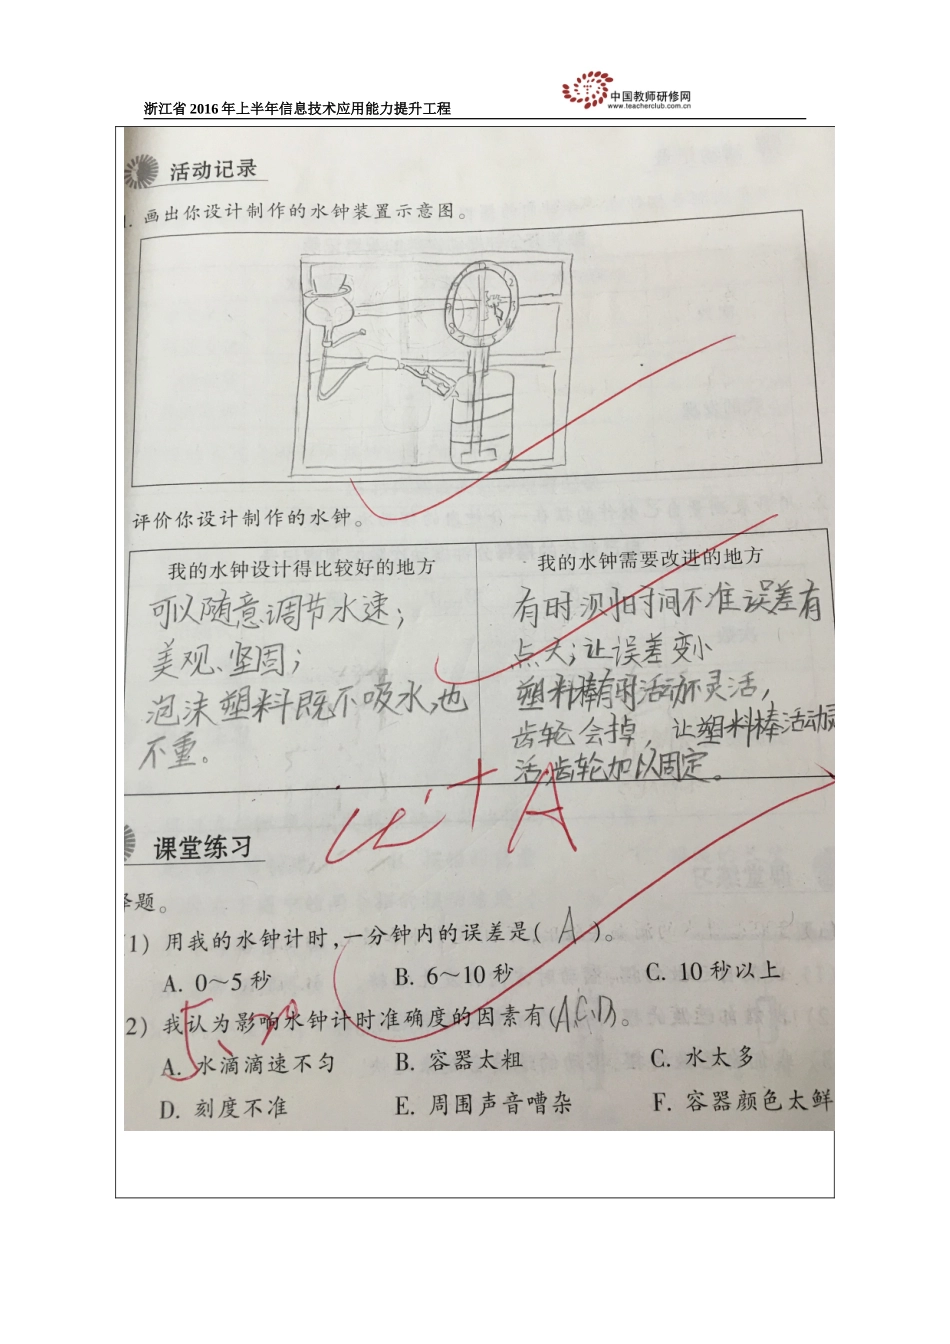 浙江省 2016 年上半年信息技术应用能力提升工程
中国教师研修网
www.teacherclub.com.cn
活动记录
1. 画出你设计制作的水钟装置示意图。
评价你设计制作的水钟。
我的水钟设计得比较好的地方
可以随意调节水速；
美观、坚固；
泡沫塑料既不吸水,也
不重。
我的水钟需要改进的地方
有时测时间不准误差有
点大；让误差变小
塑料棒有时活动不灵活，
齿轮会掉，让塑料棒活动灵
活,齿轮加以固定。
A
课堂练习
择题。
1) 用我的水钟计时,一分钟内的误差是( A )。
A. 0～5 秒 B. 6～10 秒 C. 10 秒以上
2) 我认为影响水钟计时准确度的因素有(A,C,D)。
A. 水滴滴速不匀 B. 容器太粗 C. 水太多
D. 刻度不准 E. 周围声音嘈杂 F. 容器颜色太鲜